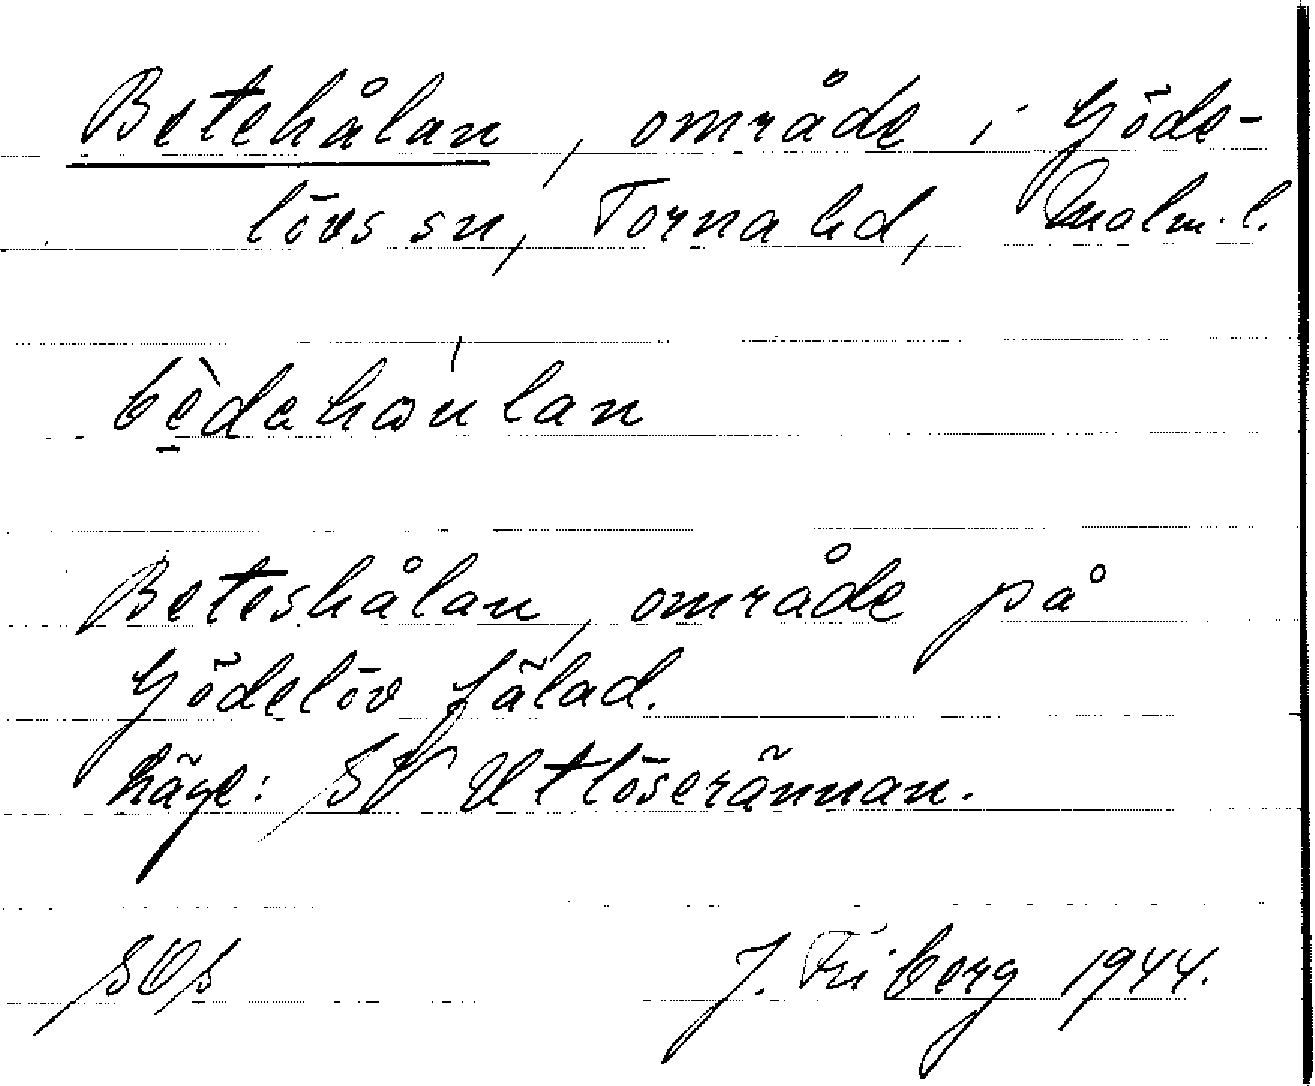 Betehålan, område i Göde-
lövs sn, Torna hd, Malm. l.
bèdahaulan
Beteshålan, område på
Gödelöv fälad.
Läge: SV Utlöserännan.
J. Friberg 1944.